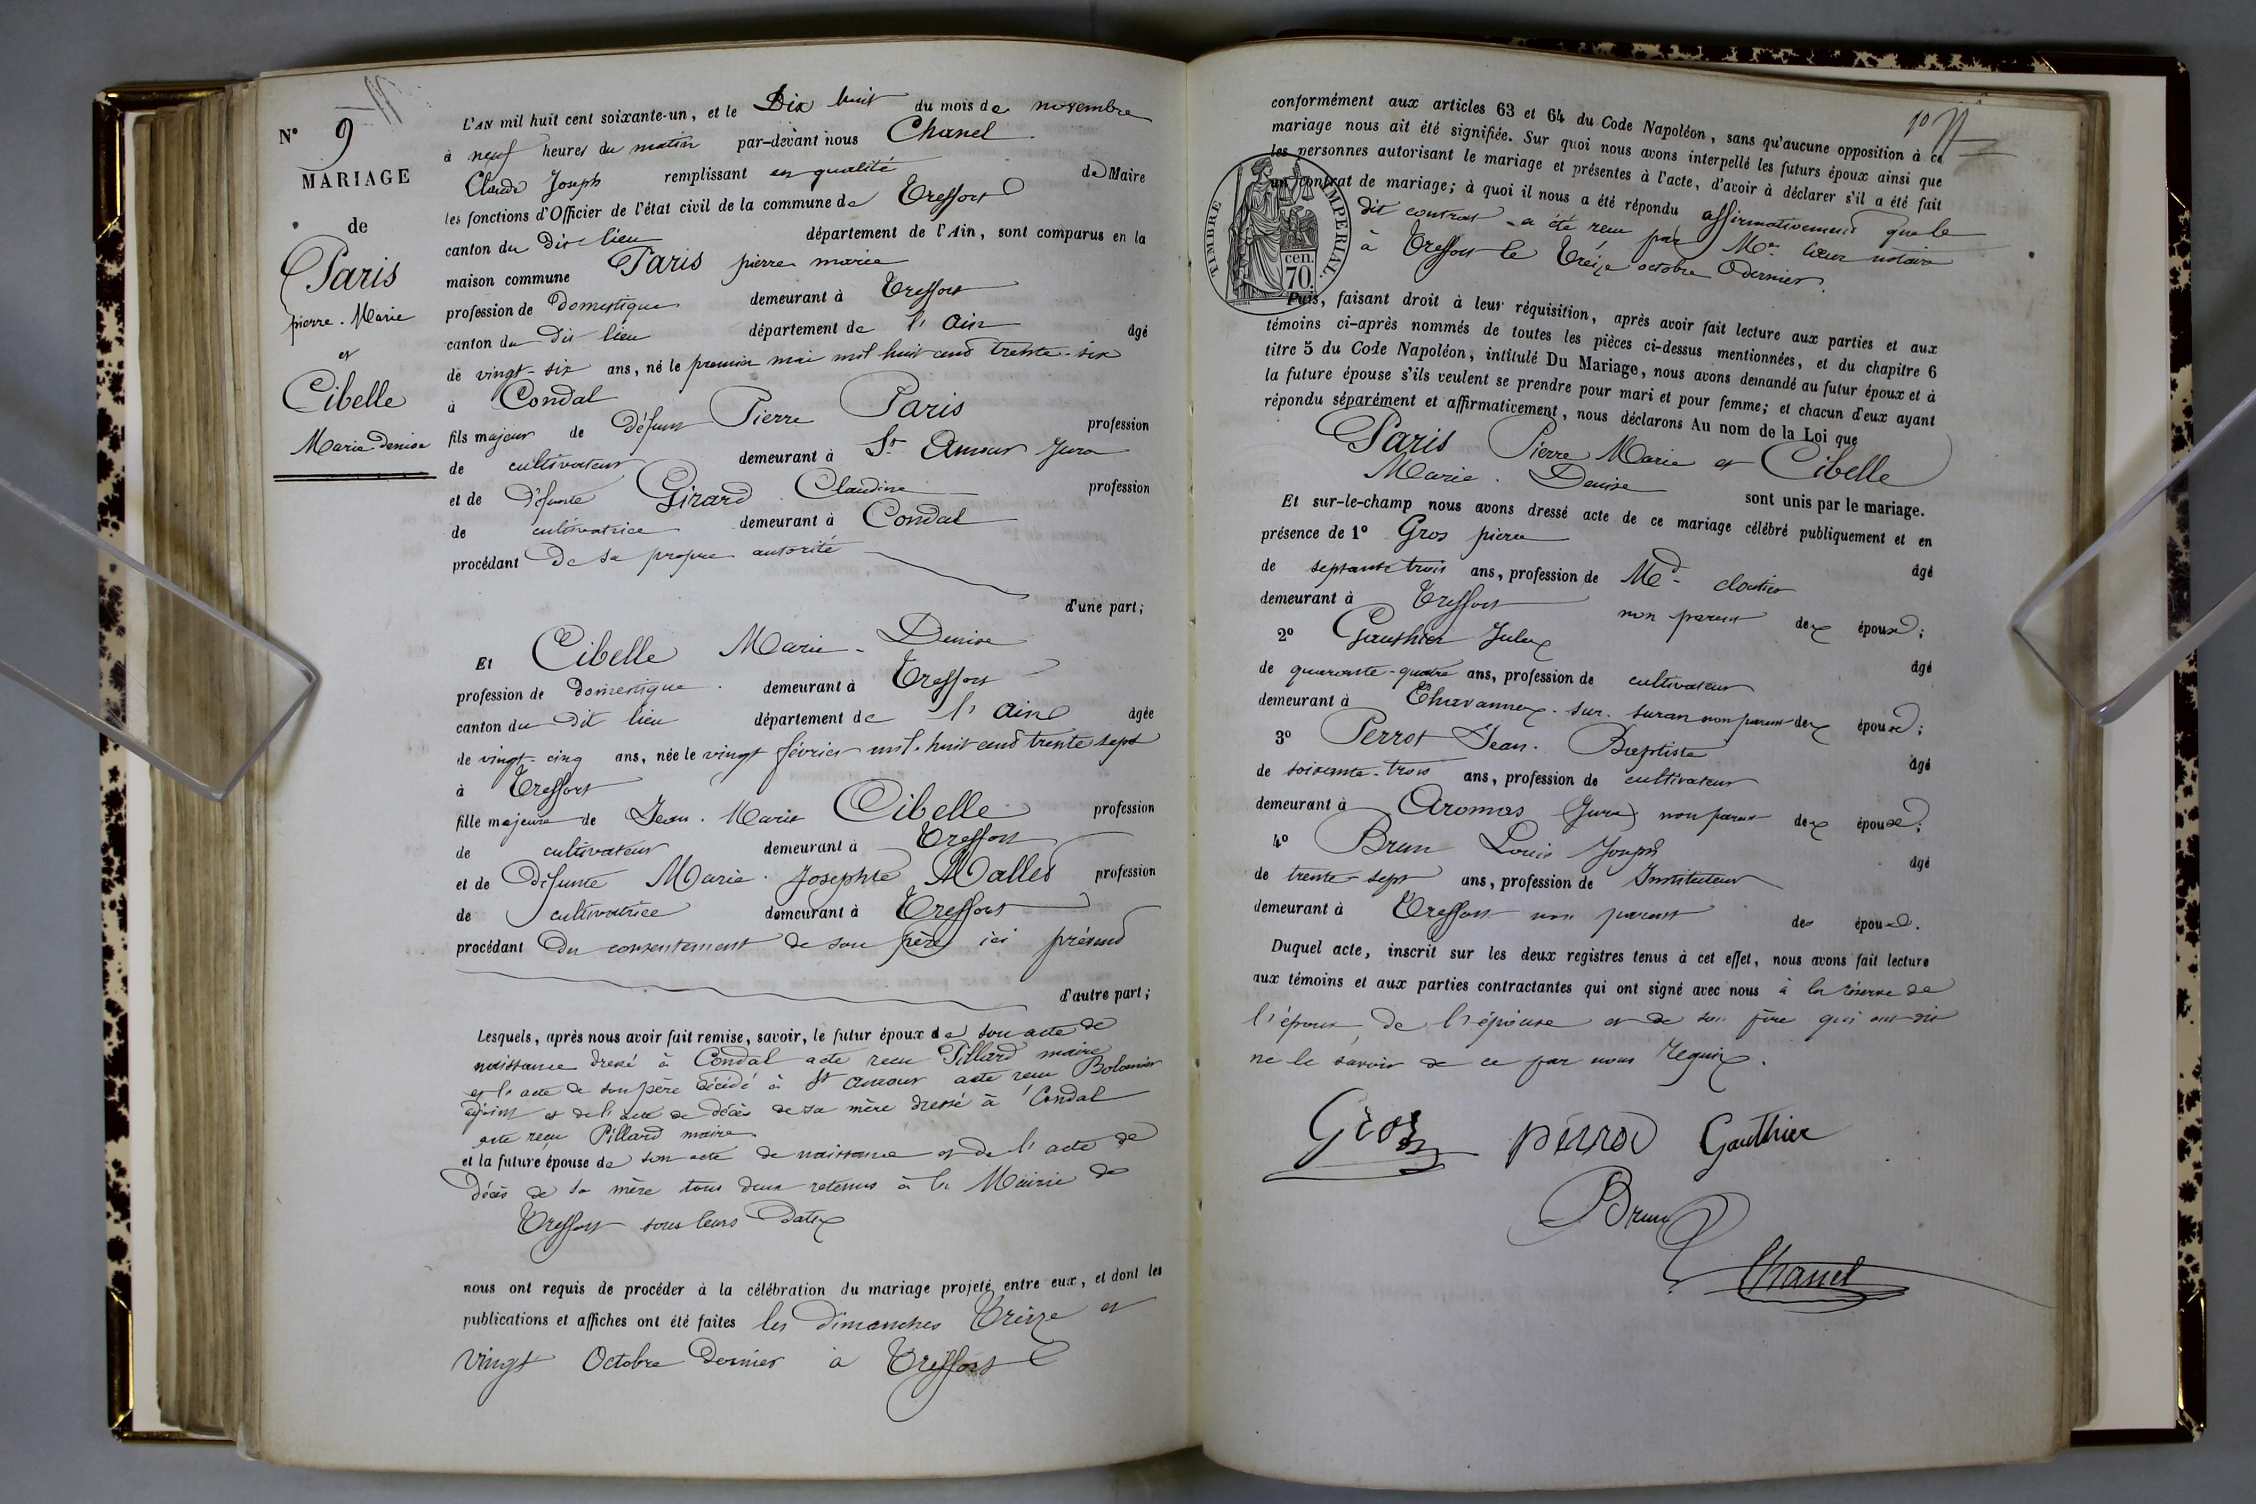 N° 9
MARIAGE
de
Paris
pierre. Marie
et
Cibelle
Marie Denise
L'AN mil huit cent soixante-un, et le Dix huit du mois de novembre
à neuf heures du matin par-devant nous Chanel
Claude Joseph remplissant en qualité de Maire
les fonctions d'Officier de l'état civil de la commune de Treffort
canton du Dit lieu département de l'Ain, sont comparus en la
maison commune Paris pierre marie
profession de Domestique demeurant à Treffort
canton du Dit lieu département de l'Ain âgé
de vingt-six ans, né le premier mai mil huit cent trente-six
à Condal
fils majeur de Défunt Pierre Paris profession
de cultivateur demeurant à St Amour Jura
et de Défunte Girard Claudine profession
de cultivatrice demeurant à Condal
procédant De sa propre autorité
d'une part;
Et Cibelle Marie-Denise
profession de domestique demeurant à Treffort
canton du Dit lieu département de l'Ain âgée
de vingt-cinq ans, née le vingt février mil huit cent trente sept
à Treffort
fille majeure de Jean. Marie Cibelle profession
de cultivateur demeurant à Treffort
et de Défunte Marie Josephte Mallet profession
de cultivatrice demeurant à Treffort
procédant Du consentement de son père ici présent
d'autre part;
Lesquels, après nous avoir fait remise, savoir, le futur époux de son acte de
naissance dressé à Condal acte reçu Pillard maire
et l'acte de son père décédé à St Amour acte reçu Bolomier
adjoint et de l'acte de décès de sa mère dressé à Condal
acte reçu Pillard maire
et la future épouse de son acte de naissance et de l'acte de
décès de sa mère tous deux retenus à la Mairie de
Treffort sous leurs Dates
nous ont requis de procéder à la célébration du mariage projeté entre eux, et dont les
publications et affiches ont été faites les dimanches Treize et
vingt Octobre Dernier à Treffort
TIMBRE IMPERIAL
70 cen.
conformément aux articles 63 et 64 du Code Napoléon, sans qu'aucune opposition à ce
mariage nous ait été signifiée. Sur quoi nous avons interpellé les futurs époux ainsi que
les personnes autorisant le mariage et présentes à l'acte, d'avoir à déclarer s'il a été fait
un contrat de mariage; à quoi il nous a été répondu affirmativement que le
dit contrat a été reçu par Me notaire
à Treffort le Treize octobre Dernier.
Puis, faisant droit à leur réquisition, après avoir fait lecture aux parties et aux
témoins ci-après nommés de toutes les pièces ci-dessus mentionnées, et du chapitre 6
titre 5 du Code Napoléon, intitulé Du Mariage, nous avons demandé au futur époux et à
la future épouse s'ils veulent se prendre pour mari et pour femme; et chacun d'eux ayant
répondu séparément et affirmativement, nous déclarons Au nom de la Loi que
Paris Pierre Marie et Cibelle
Marie. Denise sont unis par le mariage.
Et sur-le-champ nous avons dressé acte de ce mariage célébré publiquement et en
présence de 1° Gros pierre
âgé
de septante trois ans, profession de Md cloutier
demeurant à Treffort non parent des époux;
2° Gauthier Jules
âgé
de quarante-quatre ans, profession de cultivateur
demeurant à Chavannes. sur. suran non parent des époux;
3° Perrot Jean. Baptiste
âgé
de soixante-trois ans, profession de cultivateur
demeurant à Aromas (Jura) non parent des époux;
4° Brun Louis Joseph
âgé
de trente-sept ans, profession de Instituteur
demeurant à Treffort non parent des époux.
Duquel acte, inscrit sur les deux registres tenus à cet effet, nous avons fait lecture
aux témoins et aux parties contractantes qui ont signé avec nous à la réserve de
l'époux de l'épouse et de son père qui ont dit
ne le savoir de ce par nous Requis.
Gros Pérrot Gauthier
Brun
Chanel